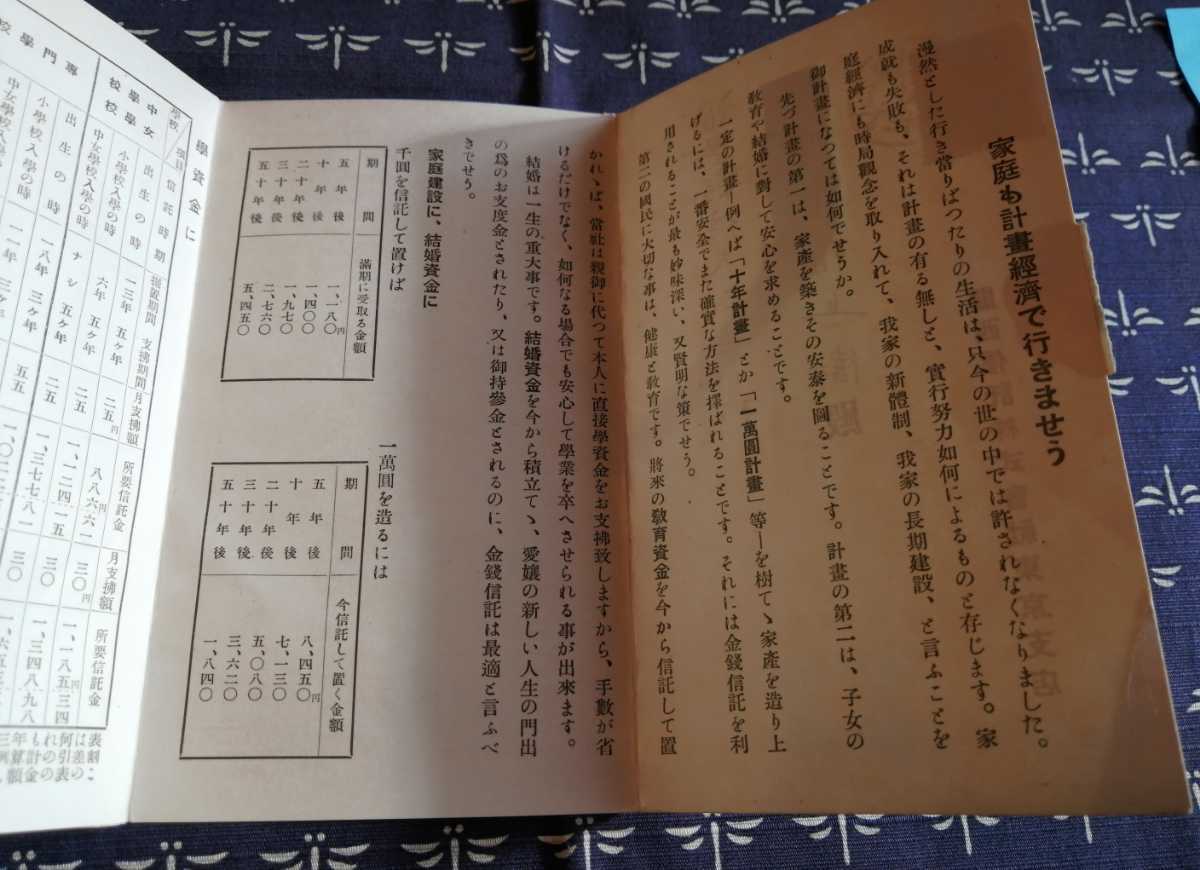 家庭も計畫經濟で行きませう
漫然とした行き當りばつたりの生活は、只今の世の中では許されなくなりました。
成就も失敗も、それは計畫の有る無しと、實行努力如何によるものと存じます。家
庭經濟にも時局觀念を取り入れて、我家の新體制、我家の長期建設、と言ふことを
御計畫になつては如何でせうか。
先づ計畫の第一は、家產を築きその安泰を圖ることです。計畫の第二は、子女の
敎育や結婚に對して安心を求めることです。
一定の計畫―例へば「十年計畫」とか「一萬圓計畫」等―を樹てゝ家產を造り上
げるには、一番安全でまた確實な方法を擇ばれることです。それには金錢信託を利
用されることが最も妙味深い、又賢明な策でせう。
第二の國民に大切な事は、健康と敎育です。將來の敎育資金を今から信託して置
かれゝば、當社は親御に代つて本人に直接學資金をお支拂致しますから、手數が省
けるだけでなく、如何なる場合でも安心して學業を卒へさせられる事が出來ます。
結婚は一生の重大事です。結婚資金を今から積立てゝ、愛孃の新しい人生の門出
の爲のお支度金とされたり、又は御持參金とされるのに、金錢信託は最適と言ふべ
きでせう。
家庭建設に、結婚資金に
千圓を信託して置けば
期間 滿期に受取る金額
五年後 一、一八〇円
十年後 一、四〇〇
二十年後 一、九七〇
三十年後 二、七六〇
五十年後 五、四五〇
一萬圓を造るには
期間 今信託して置く金額
五年後 八、四五〇円
十年後 七、一三〇
二十年後 五、〇八〇
三十年後 三、六二〇
五十年後 一、八四〇
學資金に
學校 項目 信託時期 据置期間 支拂期間 月支拂額 所要信託金 月支拂額 所要信託金
中女學學校校 出生の時 一三年 五ヶ年 二五円 八八六六一円 三〇円 一、一八五三四円
小學校入學の時 六年 五ヶ年 二五 一、一二四一五 三〇 一、三四八九八
中女學校入學の時 ナシ 五ヶ年 二五
專門學校 出生の時 一八年 三ヶ年 五五
小學校入學の時 一一年 三ヶ年 五五
表は何れも年三
割差引の計算例